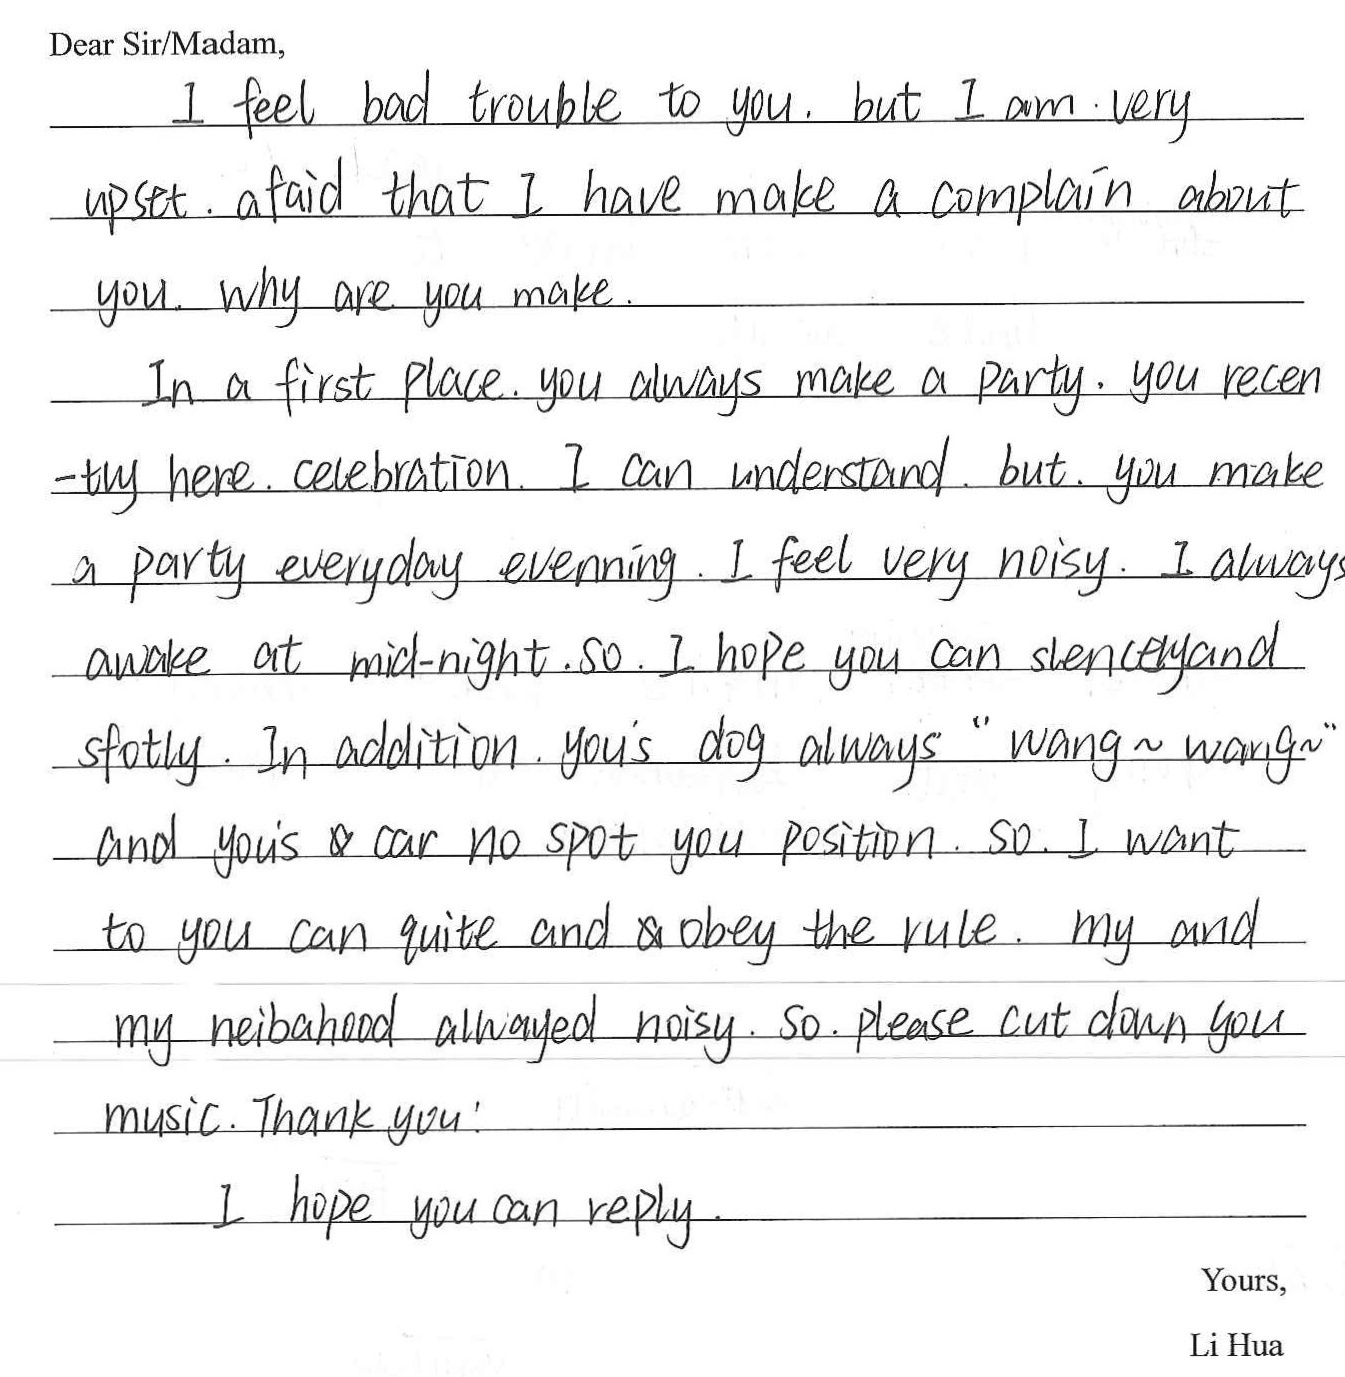 Dear Sir/Madam,
I feel bad trouble to you. but I am very
upset. afaid that I have make a complain about
you. why are you make.
In a first place. you always make a party. you recen
-tly here. celebration. I can understand. but. you make
a party everyday evenning. I feel very noisy. I always
awake at mid-night. so. I hope you can slencelyand
sfotly. In addition. you's dog always "wang~wang~"
and you's car no spot you position. so. I want
to you can quite and obey the rule. my and
my neibahood alwayed noisy. so. please cut down you
music. Thank you!
I hope you can reply.
Yours,
Li Hua